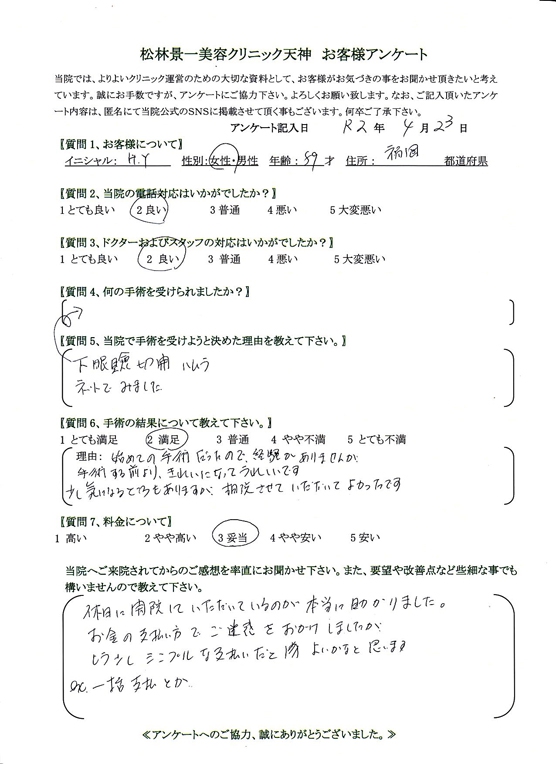 松林景一美容クリニック天神 お客様アンケート
当院では、よりよいクリニック運営のための大切な資料として、お客様がお気づきの事をお聞かせ頂きたいと考え
ています。誠にお手数ですが、アンケートにご協力下さい。よろしくお願い致します。なお、ご記入頂いたアンケ
ート内容は、匿名にて当院公式のSNSに掲載させて頂く事もございます。何卒ご了承下さい。
アンケート記入日 R2 年 4 月 23 日
〖質問 1、お客様について〗
イニシャル: H.Y 性別:女性・男性 年齢: 59 才 住所: 福岡 都道府県
〖質問 2、当院の電話対応はいかがでしたか?〗
1 とても良い 2 良い 3 普通 4 悪い 5 大変悪い
〖質問 3、ドクターおよびスタッフの対応はいかがでしたか?〗
1 とても良い 2 良い 3 普通 4 悪い 5 大変悪い
〖質問 4、何の手術を受けられましたか?〗
〖質問 5、当院で手術を受けようと決めた理由を教えて下さい。〗
下眼瞼切開 ハムラ
ネットでみました
〖質問 6、手術の結果について教えて下さい。〗
1 とても満足 2 満足 3 普通 4 やや不満 5 とても不満
理由: 始めての手術だったので、経験がありませんが、
手術する前より、きれいになってうれしいです
少し気になるところもありますが、相談させていただいてよかったです
〖質問 7、料金について〗
1 高い 2 やや高い 3 妥当 4 やや安い 5 安い
当院へご来院されてからのご感想を率直にお聞かせ下さい。また、要望や改善点など些細な事でも
構いませんので教えて下さい。
休日に開院していただいているのが本当に助かりました。
お金の支払い方でご迷惑をおかけしましたが、
もう少しシンプルな支払いだと よいかなと思います
ex. 一括支払とか
≪アンケートへのご協力、誠にありがとうございました。≫